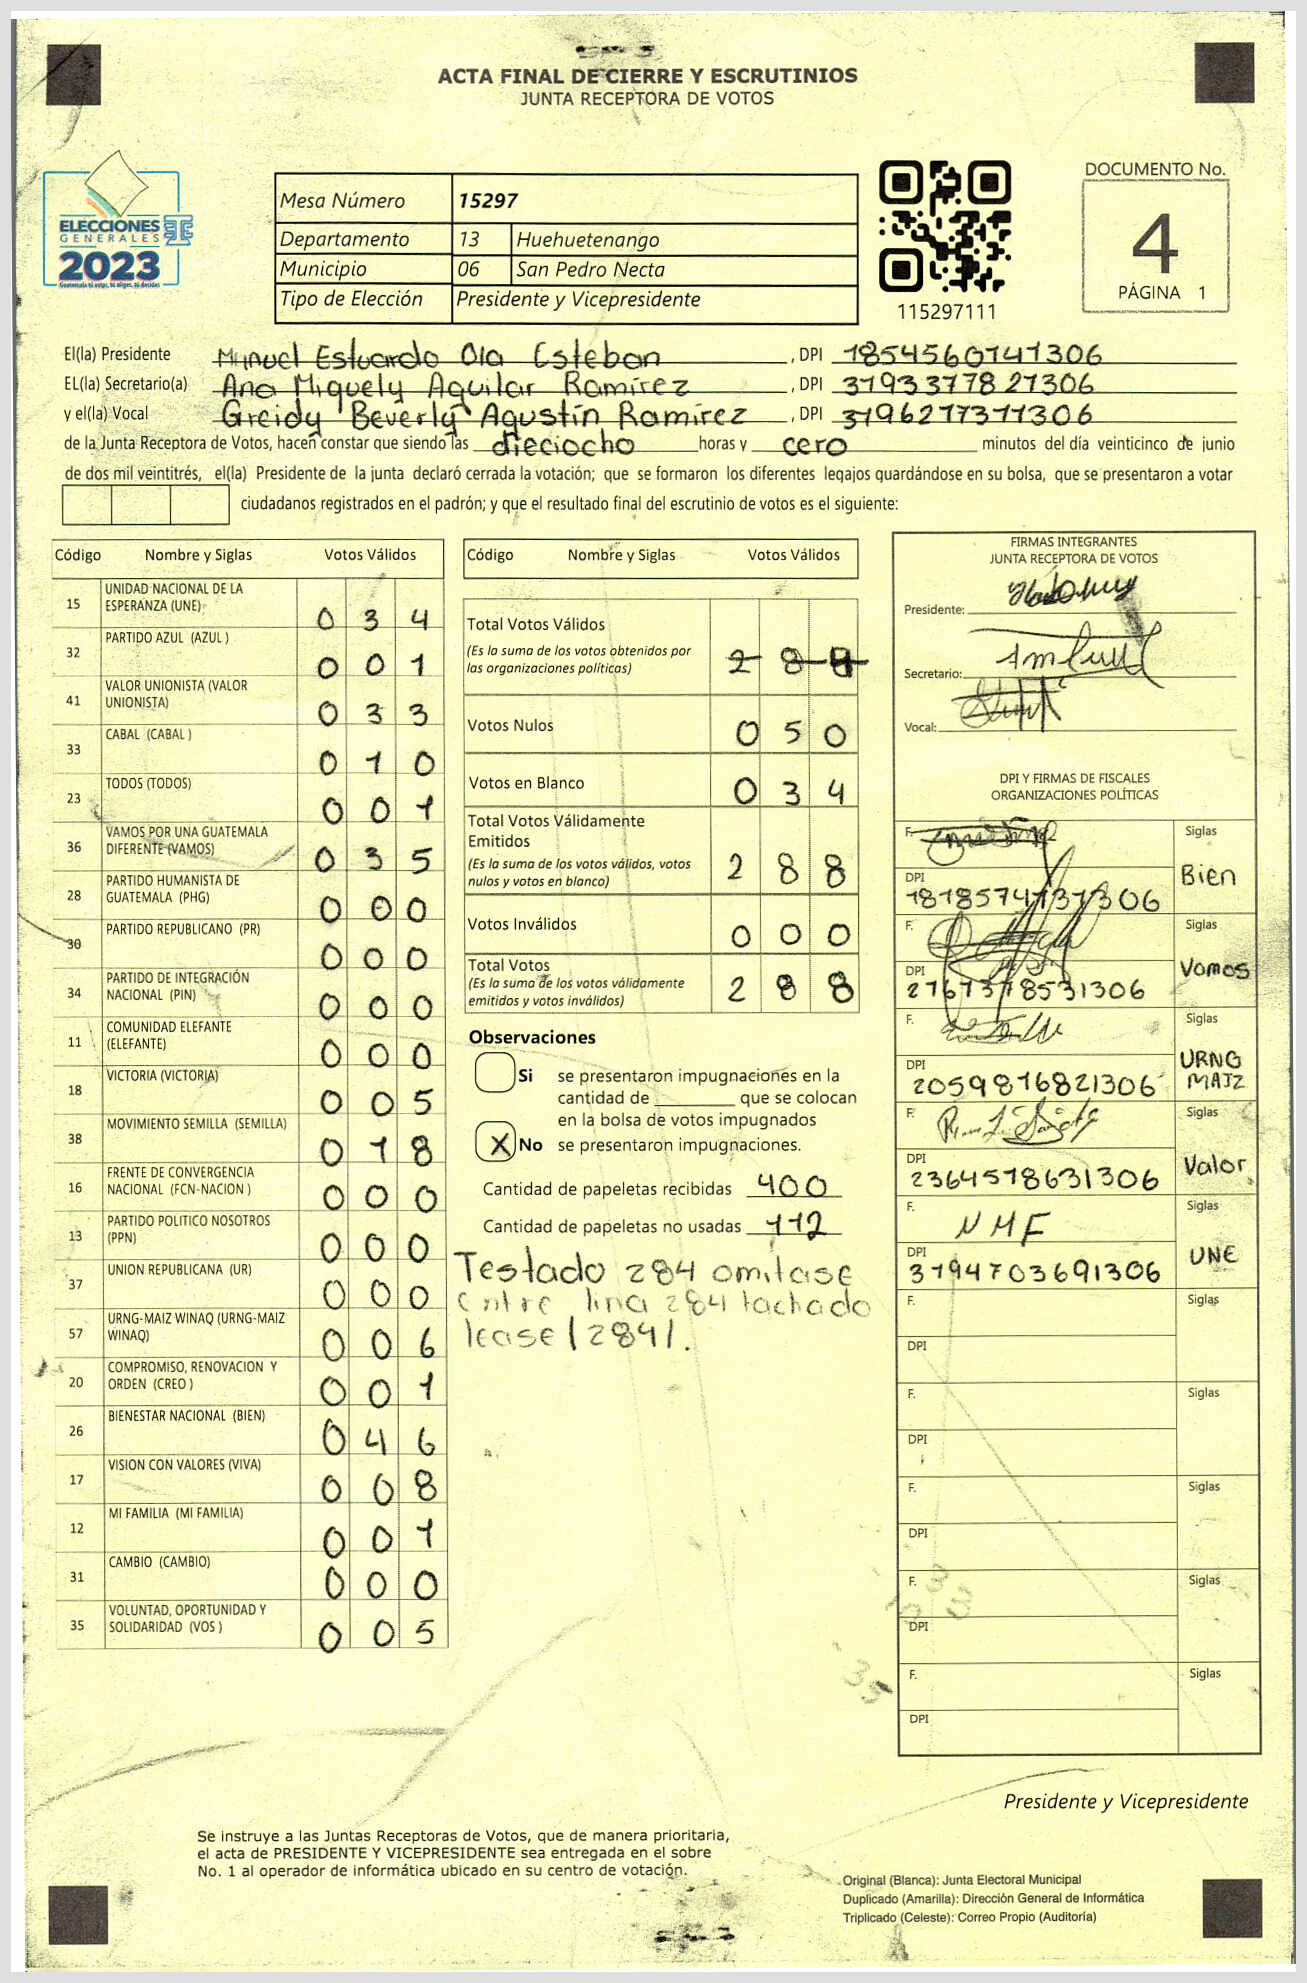 ACTA FINAL DE CIERRE Y ESCRUTINIOS
JUNTA RECEPTORA DE VOTOS
ELECCIONES
GENERALES
2023
Guatemala tú votas, tú eliges, tú decides
Mesa Número 15297
Departamento 13 Huehuetenango
Municipio 06 San Pedro Necta
Tipo de Elección Presidente y Vicepresidente
115297111
DOCUMENTO No.
4
PÁGINA 1
El(la) Presidente Manuel Estuardo Ola Esteban , DPI 1854560141306
EL(la) Secretario(a) Ana Miquely Aguilar Ramírez , DPI 3193377827306
y el(la) Vocal Greidy Beverly Agustín Ramírez , DPI 3196217311306
de la Junta Receptora de Votos, hacen constar que siendo las dieciocho horas y cero minutos del día veinticinco de junio
de dos mil veintitrés, el(la) Presidente de la junta declaró cerrada la votación; que se formaron los diferentes legajos guardándose en su bolsa, que se presentaron a votar
ciudadanos registrados en el padrón; y que el resultado final del escrutinio de votos es el siguiente:
Código Nombre y Siglas Votos Válidos
15 UNIDAD NACIONAL DE LA ESPERANZA (UNE) 0 3 4
32 PARTIDO AZUL (AZUL ) 0 0 1
41 VALOR UNIONISTA (VALOR UNIONISTA) 0 3 3
33 CABAL (CABAL ) 0 1 0
23 TODOS (TODOS) 0 0 1
36 VAMOS POR UNA GUATEMALA DIFERENTE (VAMOS) 0 3 5
28 PARTIDO HUMANISTA DE GUATEMALA (PHG) 0 0 0
30 PARTIDO REPUBLICANO (PR) 0 0 0
34 PARTIDO DE INTEGRACIÓN NACIONAL (PIN) 0 0 0
11 COMUNIDAD ELEFANTE (ELEFANTE) 0 0 0
18 VICTORIA (VICTORIA) 0 0 5
38 MOVIMIENTO SEMILLA (SEMILLA) 0 1 8
16 FRENTE DE CONVERGENCIA NACIONAL (FCN-NACION ) 0 0 0
13 PARTIDO POLITICO NOSOTROS (PPN) 0 0 0
37 UNION REPUBLICANA (UR) 0 0 0
57 URNG-MAIZ WINAQ (URNG-MAIZ WINAQ) 0 0 6
20 COMPROMISO, RENOVACION Y ORDEN (CREO ) 0 0 1
26 BIENESTAR NACIONAL (BIEN) 0 4 6
17 VISION CON VALORES (VIVA) 0 0 8
12 MI FAMILIA (MI FAMILIA) 0 0 1
31 CAMBIO (CAMBIO) 0 0 0
35 VOLUNTAD, OPORTUNIDAD Y SOLIDARIDAD (VOS ) 0 0 5
Código Nombre y Siglas Votos Válidos
Total Votos Válidos
(Es la suma de los votos obtenidos por
las organizaciones políticas) 2 8 4
Votos Nulos 0 5 0
Votos en Blanco 0 3 4
Total Votos Válidamente
Emitidos
(Es la suma de los votos válidos, votos
nulos y votos en blanco) 2 8 8
Votos Inválidos 0 0 0
Total Votos
(Es la suma de los votos válidamente
emitidos y votos inválidos) 2 8 8
Observaciones
Si se presentaron impugnaciones en la
cantidad de ________ que se colocan
en la bolsa de votos impugnados
X No se presentaron impugnaciones.
Cantidad de papeletas recibidas 400
Cantidad de papeletas no usadas 112
Testado 284 omitase
entre lina 284 tachado
lease /284/.
FIRMAS INTEGRANTES
JUNTA RECEPTORA DE VOTOS
Presidente:
Secretario:
Vocal:
DPI Y FIRMAS DE FISCALES
ORGANIZACIONES POLÍTICAS
F. Siglas
DPI 1818574731306 Bien
F. Siglas
DPI 2767378531306 Vamos
F. Siglas
DPI 2059816821306 URNG MAIZ
F. Siglas
DPI 2364518631306 Valor
F. NMF Siglas
DPI 3194703691306 UNE
F. Siglas
DPI
F. Siglas
DPI
F. Siglas
DPI
F. Siglas
DPI
F. Siglas
DPI
Presidente y Vicepresidente
Se instruye a las Juntas Receptoras de Votos, que de manera prioritaria,
el acta de PRESIDENTE Y VICEPRESIDENTE sea entregada en el sobre
No. 1 al operador de informática ubicado en su centro de votación.
Original (Blanca): Junta Electoral Municipal
Duplicado (Amarilla): Dirección General de Informática
Triplicado (Celeste): Correo Propio (Auditoría)